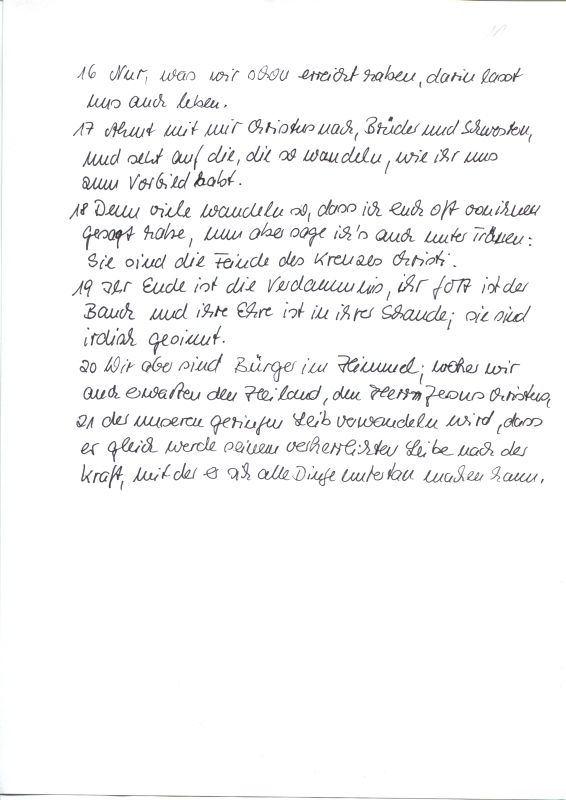 16 Nur, was wir schon erreicht haben, darin lasst
uns auch leben.
17 Ahmt mit mir Christus nach, Brüder und Schwestern,
und seht auf die, die so wandeln, wie ihr uns
zum Vorbild habt.
18 Denn viele wandeln so, dass ich euch oft von ihnen
gesagt habe, nun aber sage ich's auch unter Tränen:
Sie sind die Feinde des Kreuzes Christi.
19 Ihr Ende ist die Verdammnis, ihr Gott ist der
Bauch und ihre Ehre ist in ihrer Schande; sie sind
irdisch gesinnt.
20 Wir aber sind Bürger im Himmel; woher wir
auch erwarten den Heiland, den Herrn Jesus Christus,
21 der unseren geringen Leib verwandeln wird, dass
er gleich werde seinem verherrlichten Leibe nach der
Kraft, mit der er sich alle Dinge untertan machen kann.